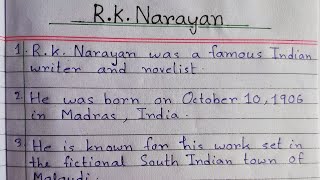 R.K. Narayan
1. R.K. Narayan was a famous Indian
writer and novelist.
2. He was born on October 10, 1906
in Madras, India.
3. He is known for his work set in
the fictional South Indian town of
Malgudi.